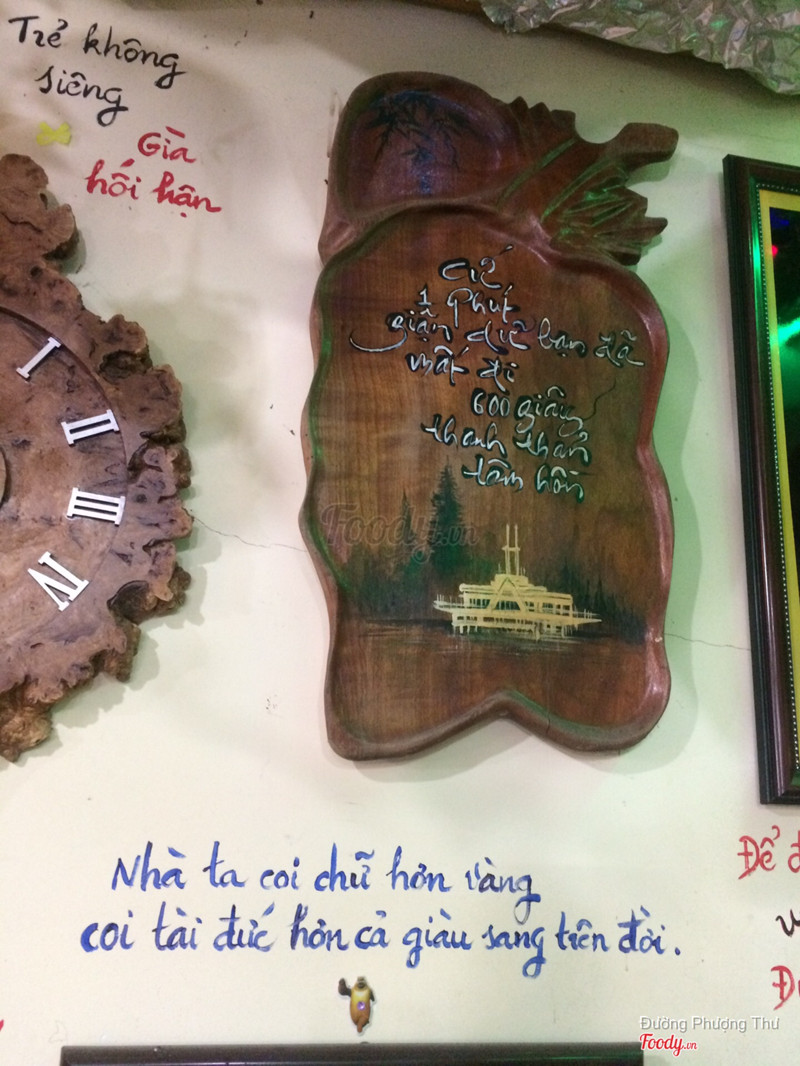 Trẻ không
siêng
Già
hối hận
I
II
III
IV
cứ
1 phút
giận dữ bạn đã
mất đi
600 giây
thanh thản
tâm hồn
Foody.vn
Nhà ta coi chữ hơn vàng
coi tài đức hơn cả giàu sang trên đời.
Để
Đường Phượng Thư
Foody.vn